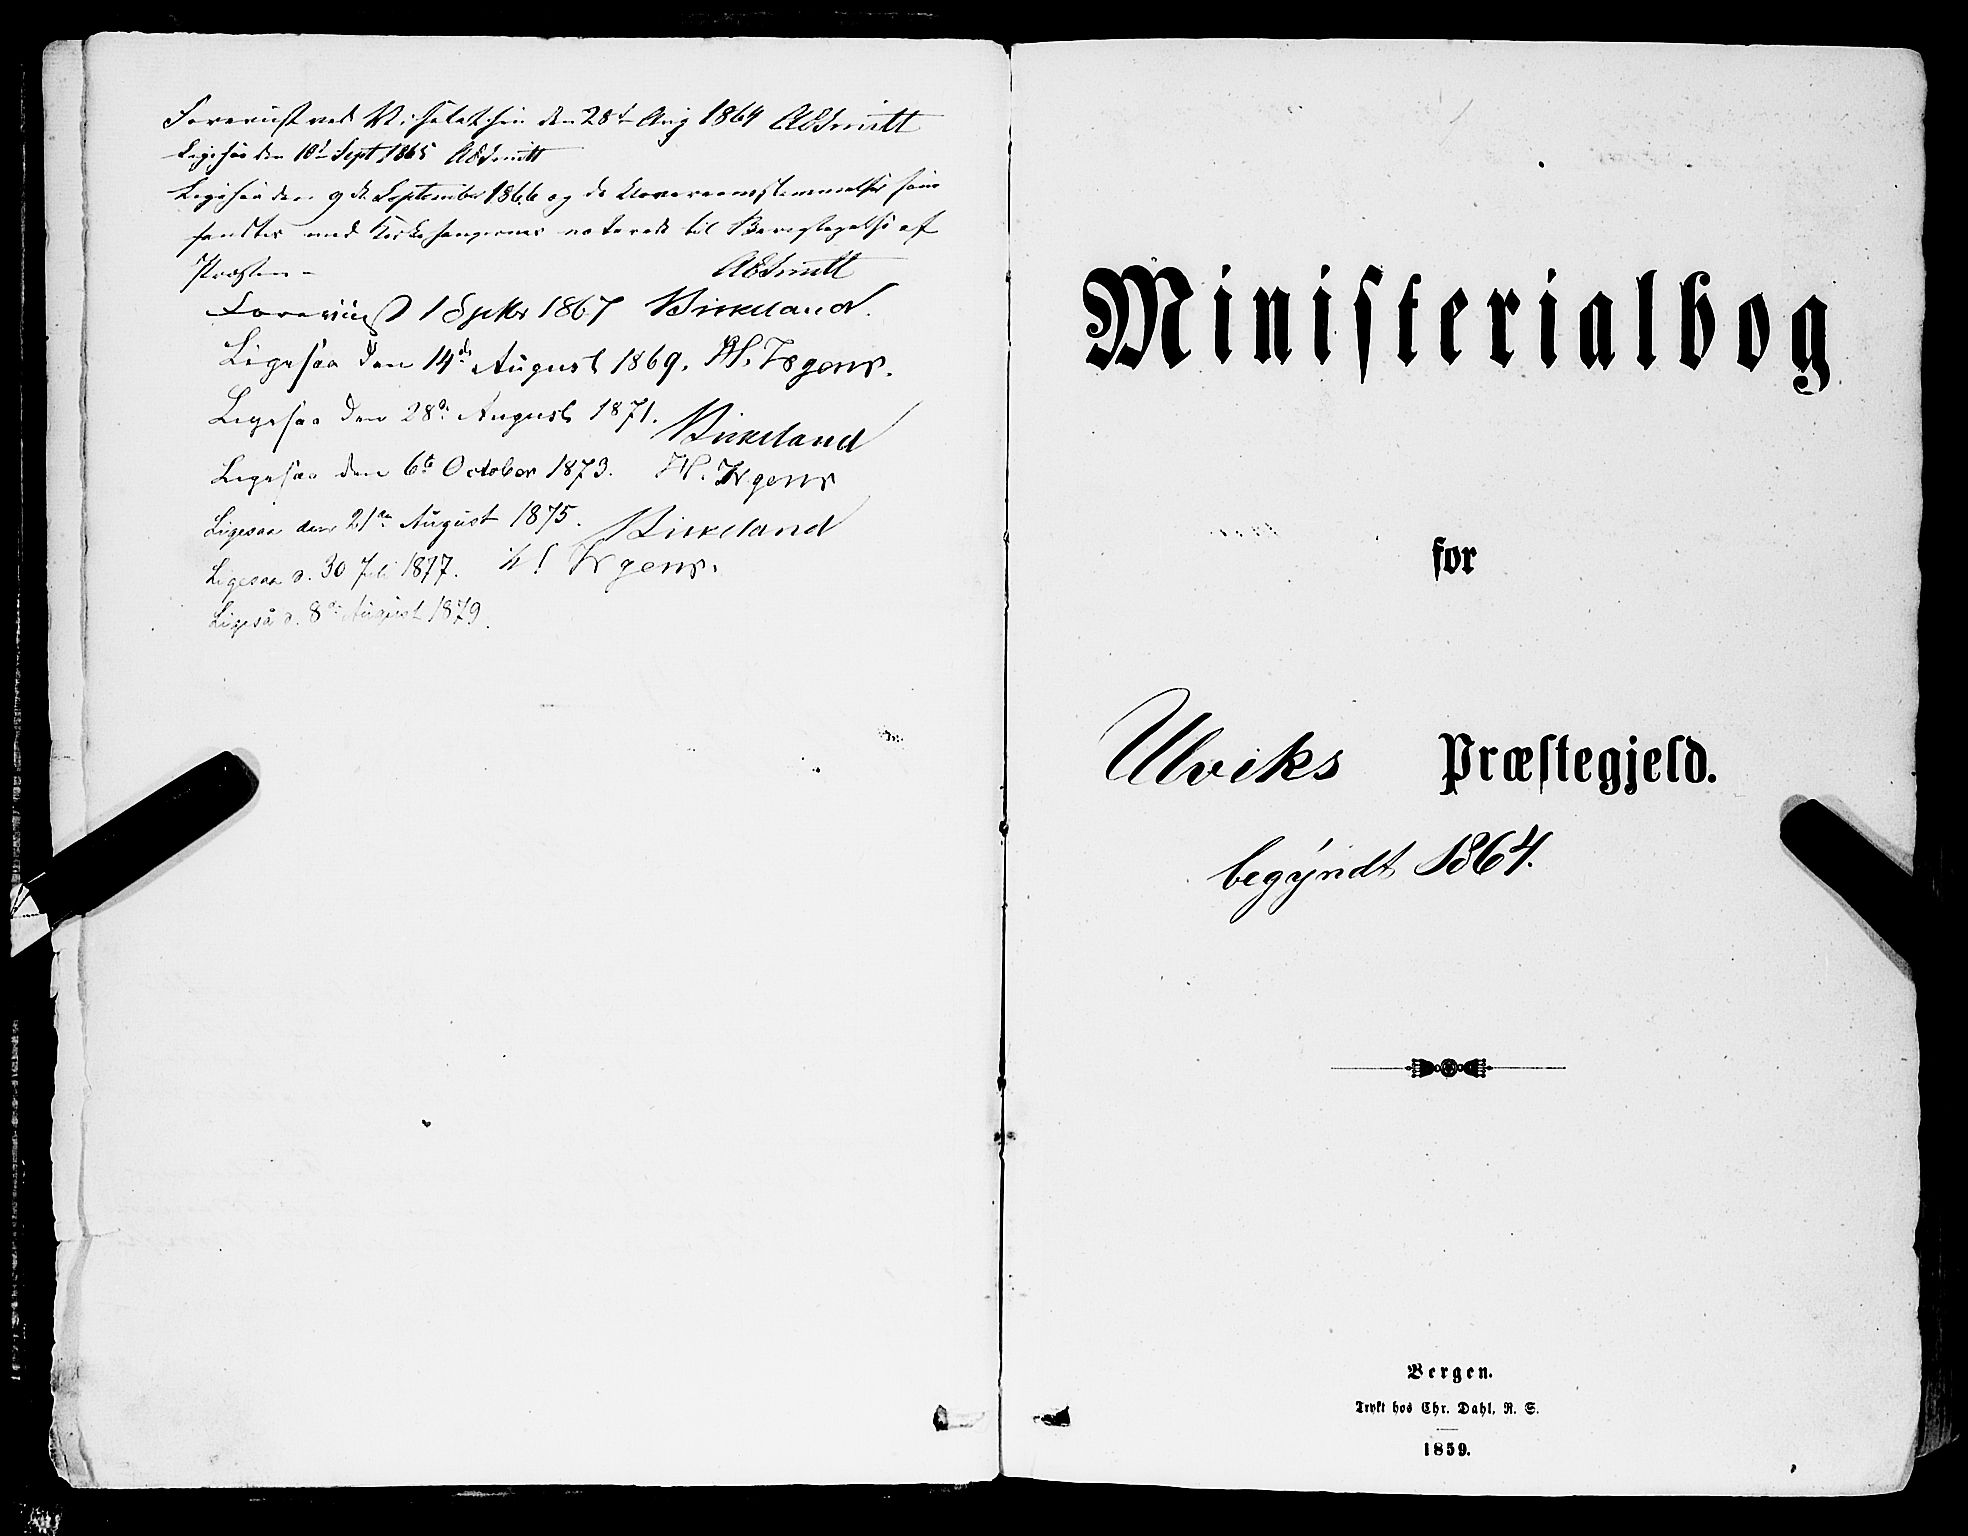 Foreviist ved Visitatsen den 28d Aug 1864 ABSmitt
Ligesaa den 10d Sept 1865 ABSmitt
Ligesaa den 9de September 1866 og de Uoverensstemmelser som
fandtes med Kirkesangernes noterede til Berigtigelse af
Præsten - ABSmitt
Foreviist 1 Septbr 1867 Birkeland.
Ligesaa den 14de August 1869. M. Irgens.
Ligesaa den 28de August 1871. Birkeland
Ligesaa den 6te October 1873. M. Irgens
Ligesaa den 21de August 1875. Birkeland
Ligesaa d. 30 Juli 1877. Irgens.
Ligesaa d. 8de August 1879.
Ministerialbog
for
Ulviks Præstegjeld.
begyndt 1864.
Bergen.
Trykt hos Chr. Dahl, R. S.
1859.